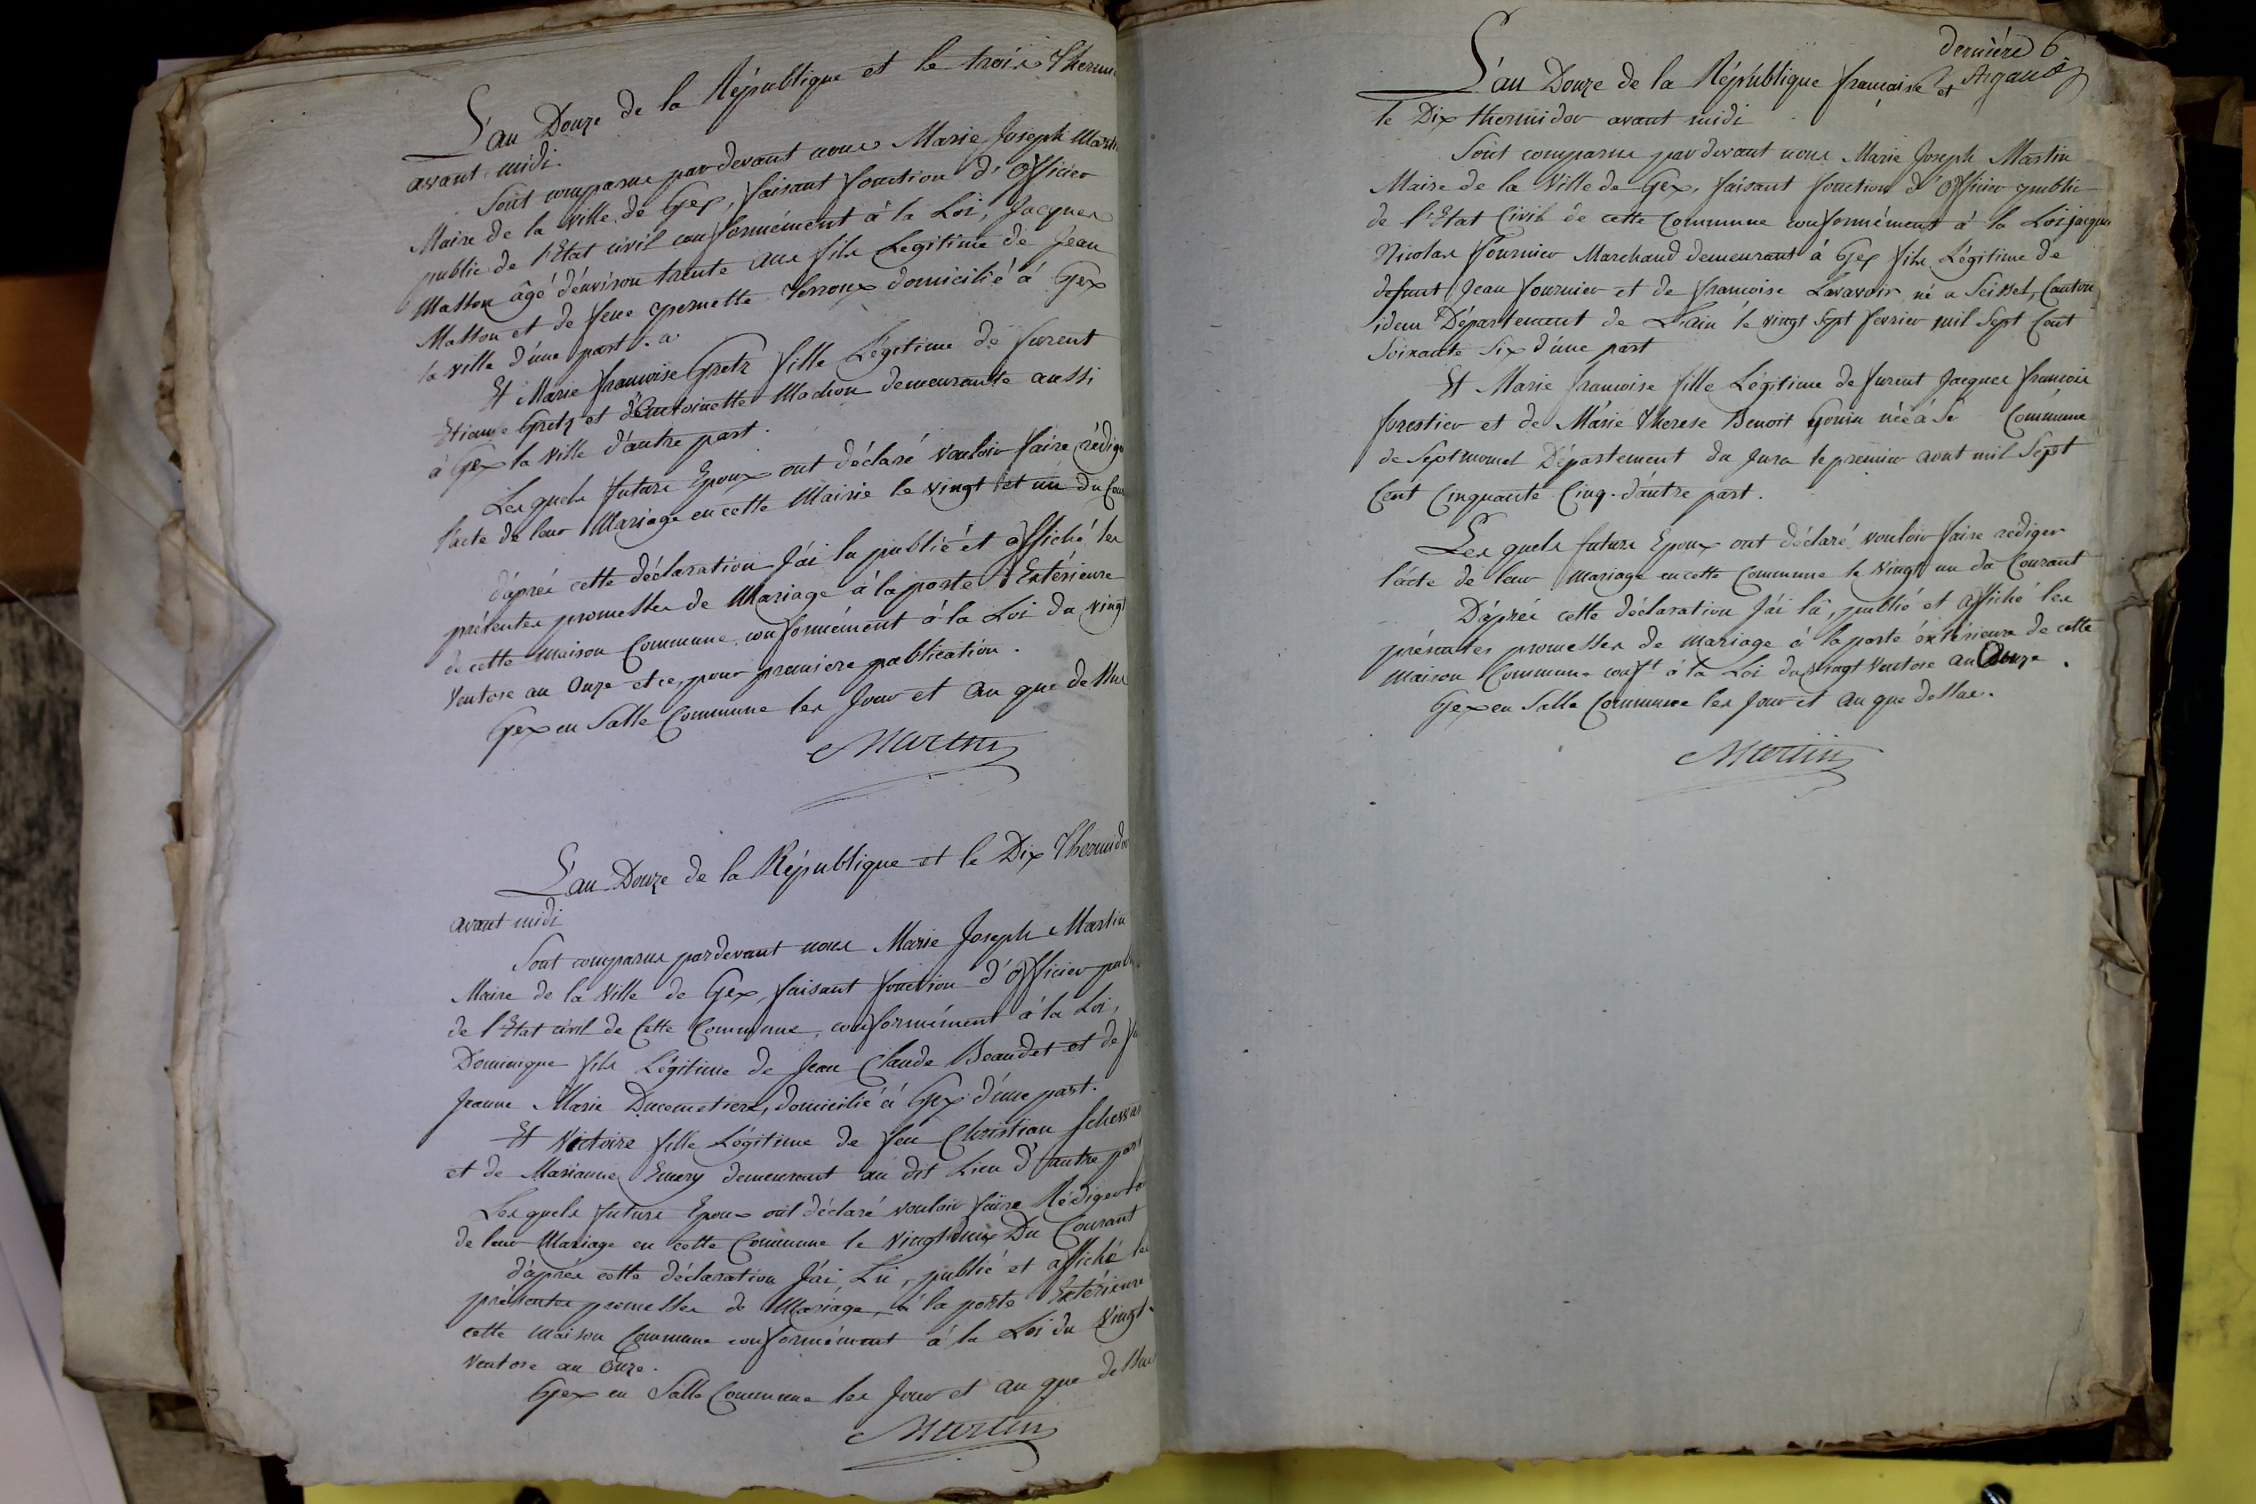 L'an Douze de la République et le trois Thermi
avant midi.
Sont comparus pardevant nous Marie Joseph Marti
Maire de la ville de Gex, faisant fonction d'officier
public de l'Etat civil conformément à la Loi, Jacques
Matton âgé d'environ trente ans fils Légitime de Jean
Matton et de feue pernette domicilié à Gex
la ville d'une part.
Et Marie francoise Gretz fille Légitime de furent
Etienne Gretz et d'Antoinette Mochon demeurante aussi
à Gex la ville d'autre part.
Les quels futurs Epoux ont déclaré vouloir faire rédige
l'acte de leur Mariage en cette Mairie le vingt et un du Cou
d'après cette déclaration J'ai lu publié et affiché les
présentes promesses de Mariage à la porte Extérieure
de cette Maison Commune conformément à la Loi du vingt
Ventose an Onze et ce, pour premiere publication.
Gex en Salle Commune les Jour et an que dessus
Martin
L'an Douze de la République et le Dix Thermidor
avant midi
Sont comparus pardevant nous Marie Joseph Martin
Maire de la Ville de Gex, faisant fonction d'officier pub
de l'Etat civil de Cette Commune, conformément à la Loi,
Dominique fils Légitime de Jean Claude Beaudet et de f
Jeanne Marie Ducometiere, domicilié à Gex d'une part.
Et Victoire fille Légitime de feu Christian
et de Marianne Emery demeurant au dit Lieu d'autre part
Les quels futurs Epoux ont déclaré vouloir faire Rédiger
de leur Mariage en cette Commune le Vingt Du Courant
d'après cette déclaration J'ai Lu, publié et affiché les
présentes promesses de Mariage, à la porte Extérieure
cette Maison Commune conformément à la Loi du Vingt
Ventose an Onze.
Gex en Salle Commune les Jour et an que dessus
Martin
dernière 6
L'an Douze de la République française et
le Dix thermidor avant midi
Sont comparus pardevant nous Marie Joseph Martin
Maire de la Ville de Gex, faisant fonction d'officier public
de l'Etat Civil de cette Commune conformément à la Loi jacques
Nicolas fournier Marchand demeurant à Gex fils Légitime de
defunt Jean fournier et de francoise Lavavoir né a Seissel, Canton
idem Département de L'ain le vingt sept fevrier mil Sept Cent
Soixante Six d'une part
Et Marie francoise fille Légitime de furent Jacques francois
forestier et de Marie Therese Benoit Gonin née à Se Commune
de Septmoncel Département du Jura le premier aout mil Sept
Cent Cinquante Cinq. d'autre part.
Les quels futurs Epoux ont déclaré vouloir faire rédiger
l'acte de leur Mariage en cette Commune le Vingt un du Courant
D'après cette déclaration J'ai lû, publié et affiché les
présentes promesses de mariage à la porte éxtérieure de cette
Maison Commune conft à la Loi du Vingt Ventose an Onze.
Gex en Salle Commune les Jour et an que dessus.
Martin